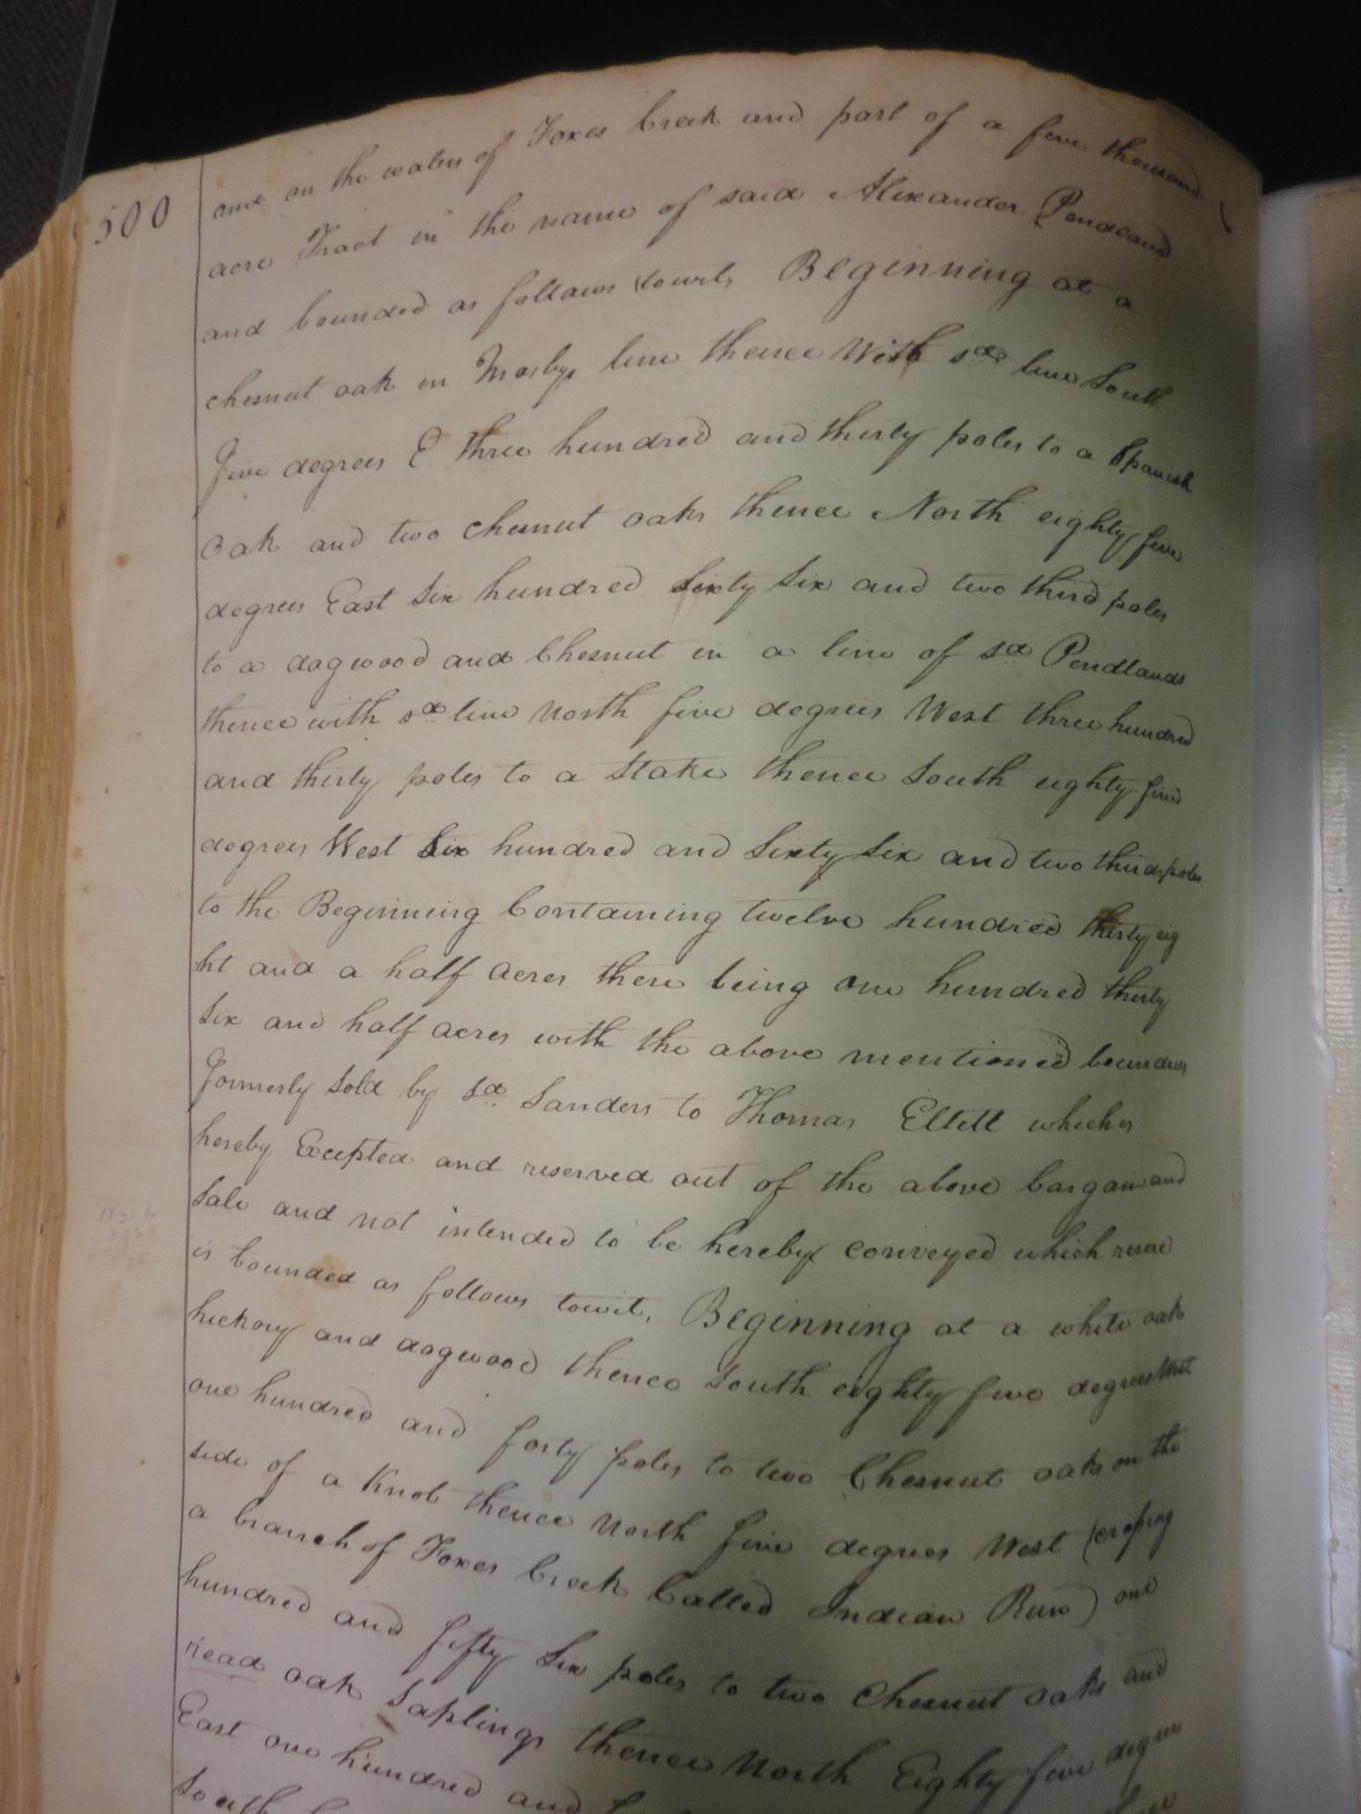 500
and on the waters of Foxes Creek and part of a five thousand
acre Tract in the name of said Alexander Pendland
and bounded as follows towit, Beginning at a
chesnut oak in Mosbys line thence With sd line South
five degrees E three hundred and thirty poles to a Spanish
Oak and two chesnut oaks thence North eighty five
degrees East Six hundred Sixty Six and two third poles
to a dogwood and Chesnut in a line of sd Pendlands
thence with sd line North five degrees West three hundred
and thirty poles to a Stake thence South eighty five
degrees West Six hundred and Sixty Six and two third poles
to the Beginning Containing twelve hundred thirty eig
ht and a half acres there being one hundred thirty
Six and half acres with the above mentioned boundres
formerly Sold by sd Sanders to Thomas Eltett which is
hereby Excepted and reserved out of the above bargain and
Sale and not intended to be hereby conveyed which
is bounded as follows towit, Beginning at a white oak
hickory and dogwood thence South eighty five degrees West
one hundred and forty poles to two Chesnut oaks on the
side of a Knob thence North five degrees West (croping
a branch of Foxes Creek Called Indian Run) one
hundred and fifty Six poles to two Chesnut oaks and
read oak Saplings thence North Eighty five degrees
East one hundred and
South